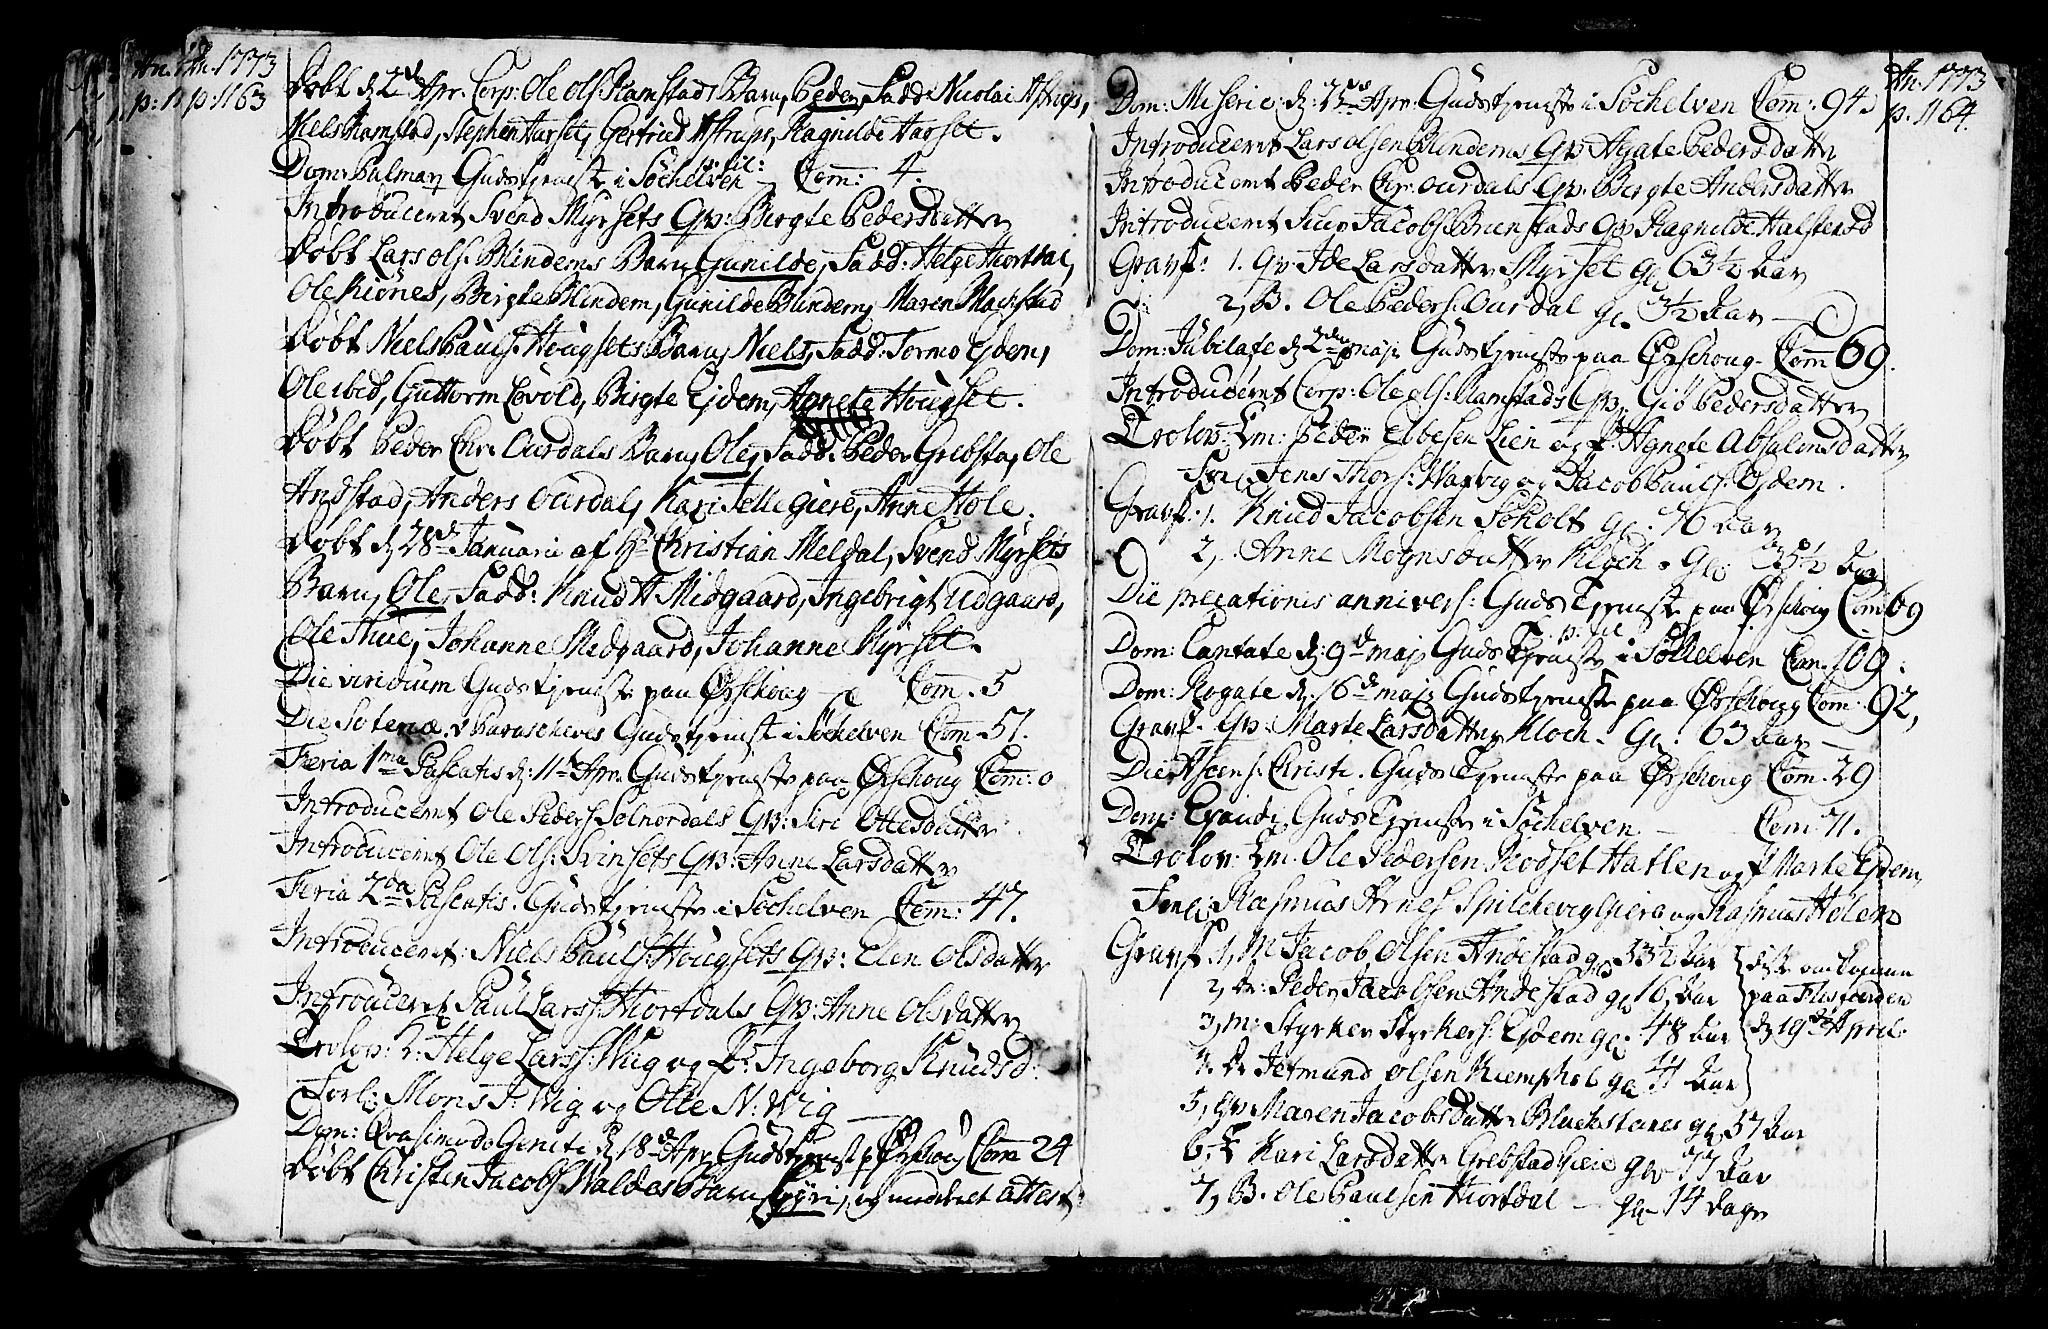 An. 1773
p. 1163
Døbt d. 2d Apr. Corp: Ole Ols: Ramstads Barn, Peder, Fadd: Nicolai Astrup,
Niels Ramstad, Stephen Aurset, Gertrud Astrups, Ragnilde Aurset.
Dom: Palmar Gudstjeneste i Søchelven Com: 4.
Introduceret Svend Myrsets Qv: Birgte Pedersdatter
Døbt Lars Ols: Blindems Barn Gunilde, Fadd: Helge Hiortdal,
Ole Riønes, Birgte Blindem, Gunilde Blindem, Maren Blachstad
Døbt Niels Pauls: Hougsets Barn, Niels, Fadd: Tormo Ejdem,
Ole ibid, Guttorm Løvold, Birgte Ejdem, Agnete Hougset.
Døbt Peder Chr. Ourdals Barn, Ole, Fadd: Peder Grebstad, Ole
Andstad, Anders Ourdal, Kari Jellegiere, Anne Hole.
Døbt d. 28d Januarii af Hr Christian Meldal, Svend Myrsets
Barn, Ole, Fadd: Knud H Midgaard, Ingebrigt Udgaard,
Ole Thue, Johanne Midgaard, Johanne Myrset.
Die viridium Gudstjeneste paa Ørschoug Com. 5
Die Soteriæ v Parascheves Gudstjenest i Søchelven Com. 51.
Feria 1ma Pascatis d: 11t Apr. Gudstjeneste paa Ørschoug Com: 0
Introduceret Ole Peders Solnordals Qv: Siri Ottesdatter
Introduceret Ole Ols: Svinsets Qv: Anne Larsdatter
Feria 2da Pascatis. Gudstjeneste i Søchelven Com: 47.
Introduceret: Niels Pauls: Hougsets Qv: Elen Olsdatter
Introduceret Paul Larss: Hiortdals Qv: Anne Olsdatter
Trolov: S: Helge Larss: Wiig og P: Ingeborg Knudsd:
Forl: Mons J: Wig og Ole N: Wig
Dom: Qvasimodo Geniti d 18d Apr. Gudstjenest p Ørschoug Com 24
Døbt Christen Jacobs Waldes Barn Gyri, og meddeelt attest,
An. 1773
p. 1164.
Dom: Miseric: d: 25de Apr. Gudstjeneste i Søchelven Com: 94.
Introduceret Lars Olsen Blindems Qv: Agate Pedersdatter
Introduceret Peder Chr. Ourdals Qv: Birgte Andersdatter
Introduceret Siur Jacobs Brunstads Qv Ragnilde Halstensd
Gravf: 1. Qv: Ide Larsdatter Myrset gl 63½ Aar
2, B. Ole Peders: Ourdal gl 3½ Aar
Dom: Jubilate d 2den maji Gudstjeneste paa Ørschoug Com 69.
Introduceret Corp: Ole Ols: Ramstads Qv: Giø Pedersdatter
Trolov: Em: Peder Ebbesen Lien og P: Agnete Absalonsdatter
For: Jens Thors: Warvig og Jacob Pauls: Ejdem.
Gravf: 1. Knud Jacobsen Søholt gl: 76 Aar
2, Anne Mognsdatter Kloch gl: 35½ Aar
Die precationis annivers: Gudstjeneste paa Ørschoug Com 69
Dom: Cantate d: 9d maji Gudstjeneste i Søchelven Com. 109.
Dom: Rogate d. 16d maji Gudstjeneste paa Ørschoug Com: 92,
Gravf. Qv: Marte Larsdatter Kloch gl: 63 Aar
Die Ascens: Christi. Gudstjeneste paa Ørschoug Com. 29
Dom: Exaudi Gudstjeneste i Søchelven Com. 71.
Trolov: Em. Ole Pedersen Rodset Hatlen og P Marte Ejdem,
For: Rasmus Arnes Spilchevig giere og Rasmus Helem
Gravf 1, M Jacob Olsen Andestad gl 53½ Aar
2, Dr: Peder Jacobsen Andestad gl 16 Aar
3, M: Styrker Styrkers: Ejdem gl. 48 Aar
4. Dr Jetmund Olsen Kiemphol gl 11 Aar
disse omkomne
paa Flisfiorden
d 19de April
5, Qv Maren Jacobsdatter Blachstenes gl 57 Aar
6. E Kari Larsdatter Grebstadgiere gl 77 Aar
7, B. Ole Paulsen Hiortdal gl 14 Dage